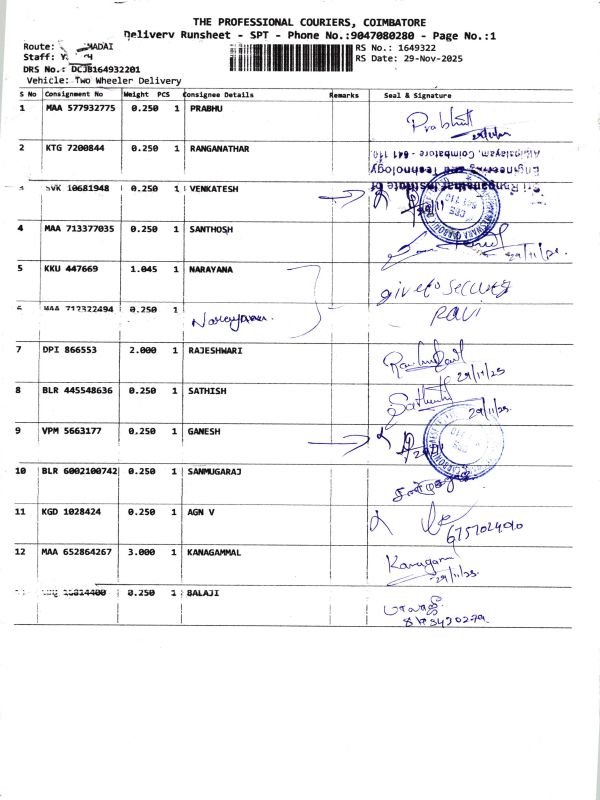 THE PROFESSIONAL COURIERS, COIMBATORE
Delivery Runsheet - SPT - Phone No.:9047080280 - Page No.:1
Route: MADAI
RS No.: 1649322
Staff:
RS Date: 29-Nov-2025
DRS No.: DCJB164932201
Vehicle: Two Wheeler Delivery
S No Consignment No Weight PCS Consignee Details Remarks Seal & Signature
1 MAA 577932775 0.250 1 PRABHU
Prabhu
2 KTG 7200844 0.250 1 RANGANATHAR
Sri Ranganathar Institute of
Engineering and Technology
Athipalayam, Coimbatore - 641 110.
3 SVK 10681948 0.250 1 VENKATESH
4 MAA 713377035 0.250 1 SANTHOSH
29/11/25.
5 KKU 447669 1.045 1 NARAYANA
give to security
Ravi
6 MAA 712322494 0.250 1 Narayana.
7 DPI 866553 2.000 1 RAJESHWARI
29/11/25
8 BLR 445548636 0.250 1 SATHISH
Sathish
29/11/25.
9 VPM 5663177 0.250 1 GANESH
10 BLR 6002100742 0.250 1 SANMUGARAJ
11 KGD 1028424 0.250 1 AGN V
12 MAA 652864267 3.000 1 KANAGAMMAL
Kanagam
29/11/25.
0.250 1 BALAJI
பாலாஜி